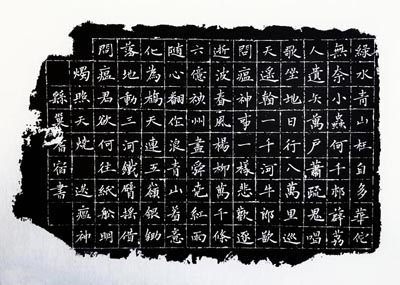 綠水青山枉自多華佗
無奈小蟲何千邨薜荔
人遺矢萬戶蕭疏鬼唱
歌坐地日行八萬里巡
天遙看一千河牛郎欲
問瘟神事一樣悲歡逐
逝波春風楊柳萬千條
六億神州盡舜堯紅雨
隨心翻作浪青山著意
化為橋天連五嶺銀鋤
落地動三河鐵臂搖借
問瘟君欲何往紙船明
燭照天燒 送瘟神
孫 宿書